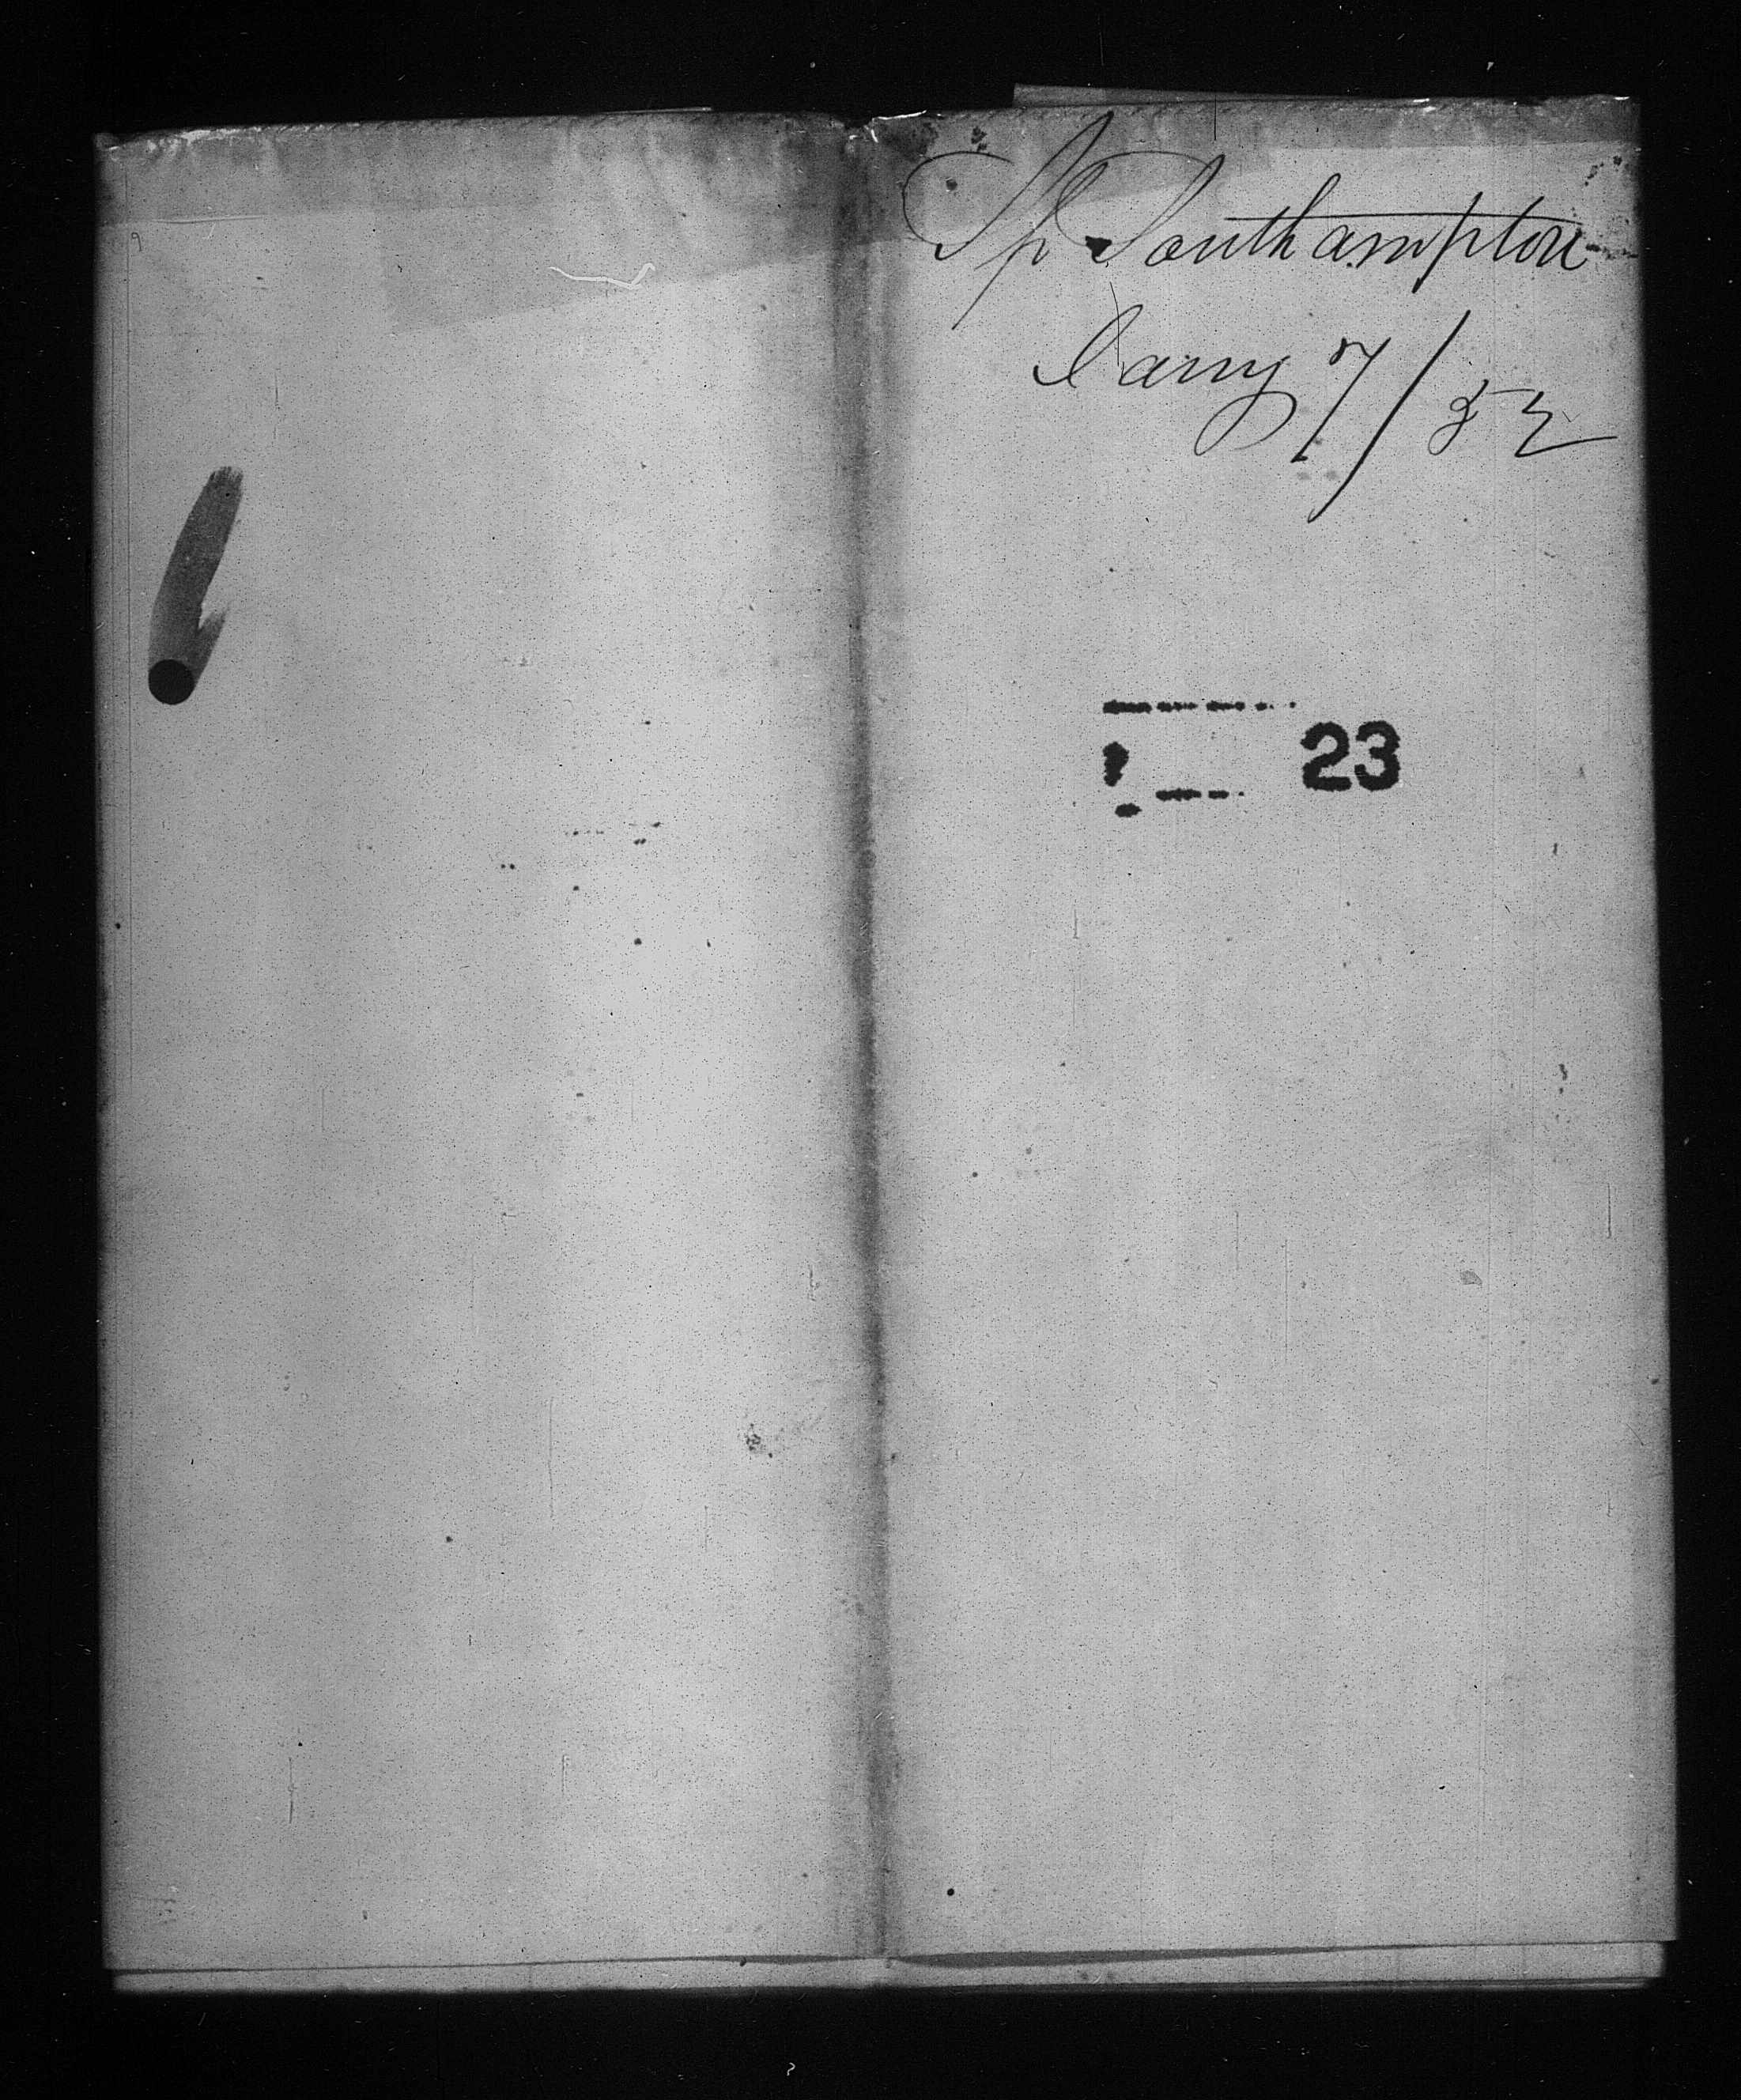 Sp Southampton
Jany 7/52
23